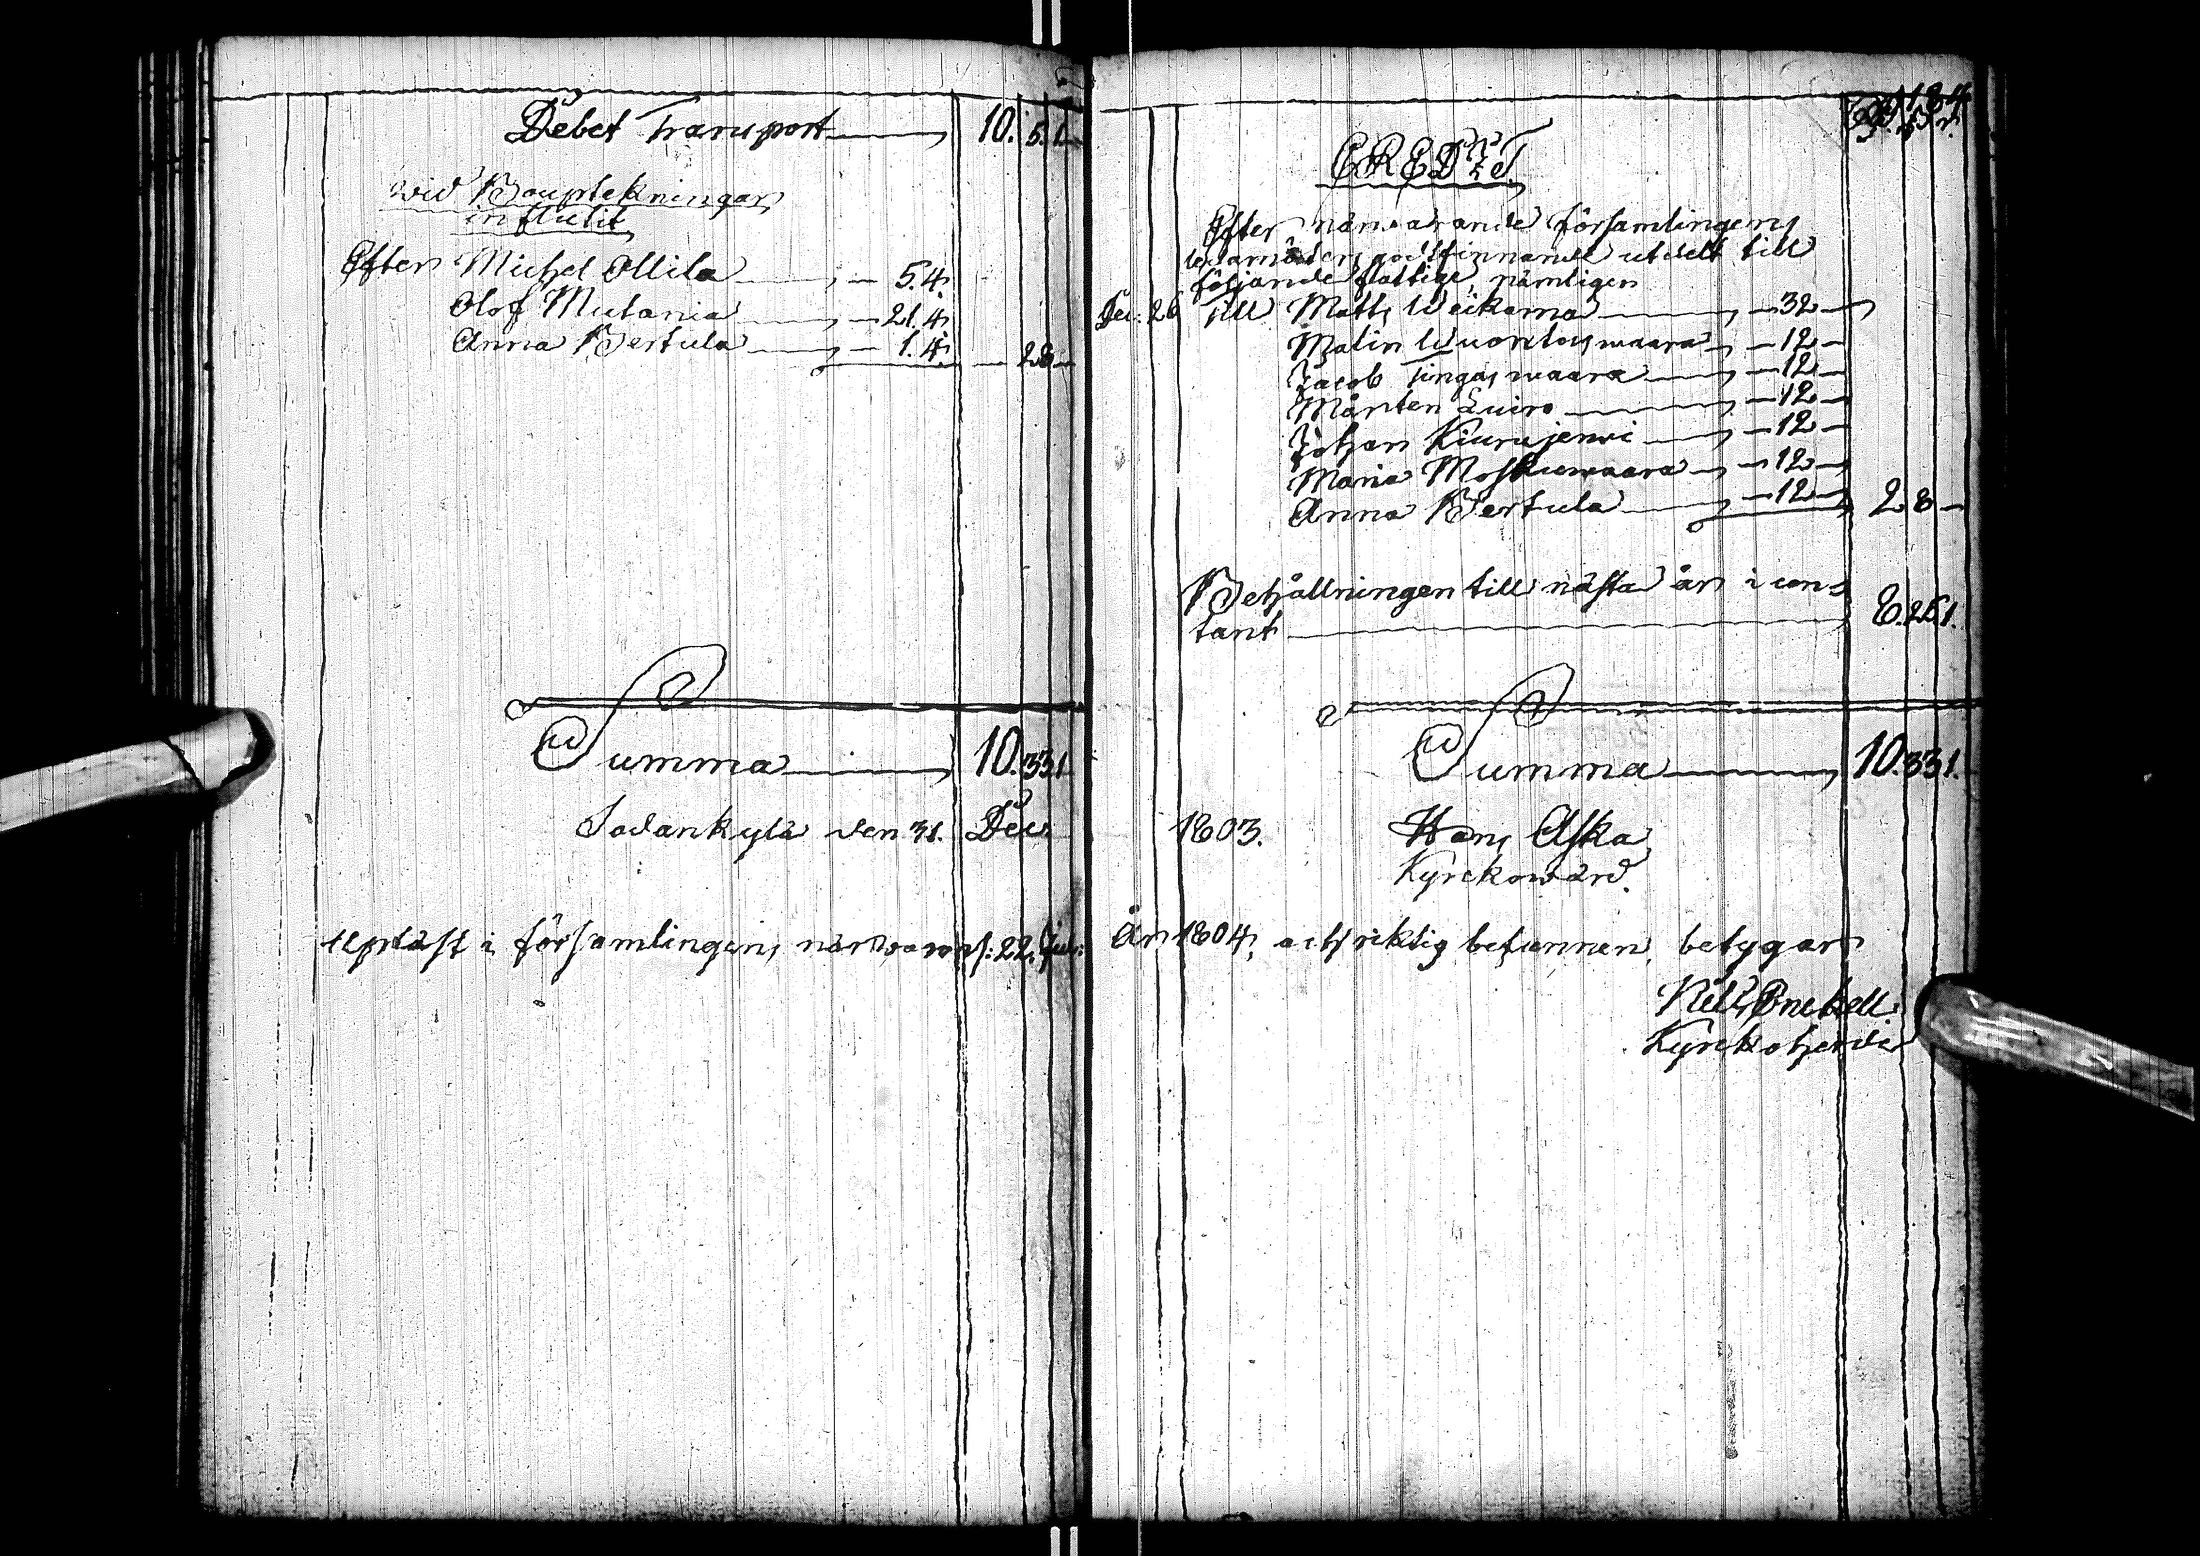 Debet Transport 10. 5. 1
wid Bouptekningar
influtit
Efter Michel Ollila — 5. 4.
Olof Mutania — 21. 4.
Anna Bertula — 1. 4. — 28 —
Summa 10. 33 1
Sodankylä den 31. Dec
upläst i församlingens närwaro d: 22. Jan:
184
CREDIT.
Efter närwarande församlingens
ledamöters godtfinnande utdelt till
följande fattige, nämligen
Dec. 26 till Matts Weikama — 32 —
Malin Wuontosmaara — 12 —
Jacob Tingasmaara — 12 —
Mårten Luiro — 12 —
Johan Kiurujerwi — 12 —
Maria Moskuwaara — 12 —
Anna Bertula — 12 — 2. 8 —
Behållningen till nästa år i con-
tant 8. 25. 1.
Summa 10. 33 1.
1803. Hans Aska
Kyrckowärd.
År 1804, och riktig befunnen, betygar
Nils Fnekell
Kyrckoherde